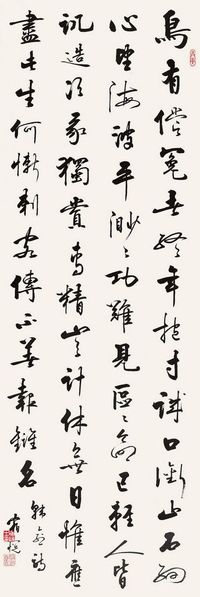 鳥有償冤者終年抱寸誠口銜山石細
心望海波平渺渺功難見區區命已輕人皆
譏造次我獨賞專精豈計休無日惟應
盡此生何慚刺客傳不著報讎名
韓愈詩